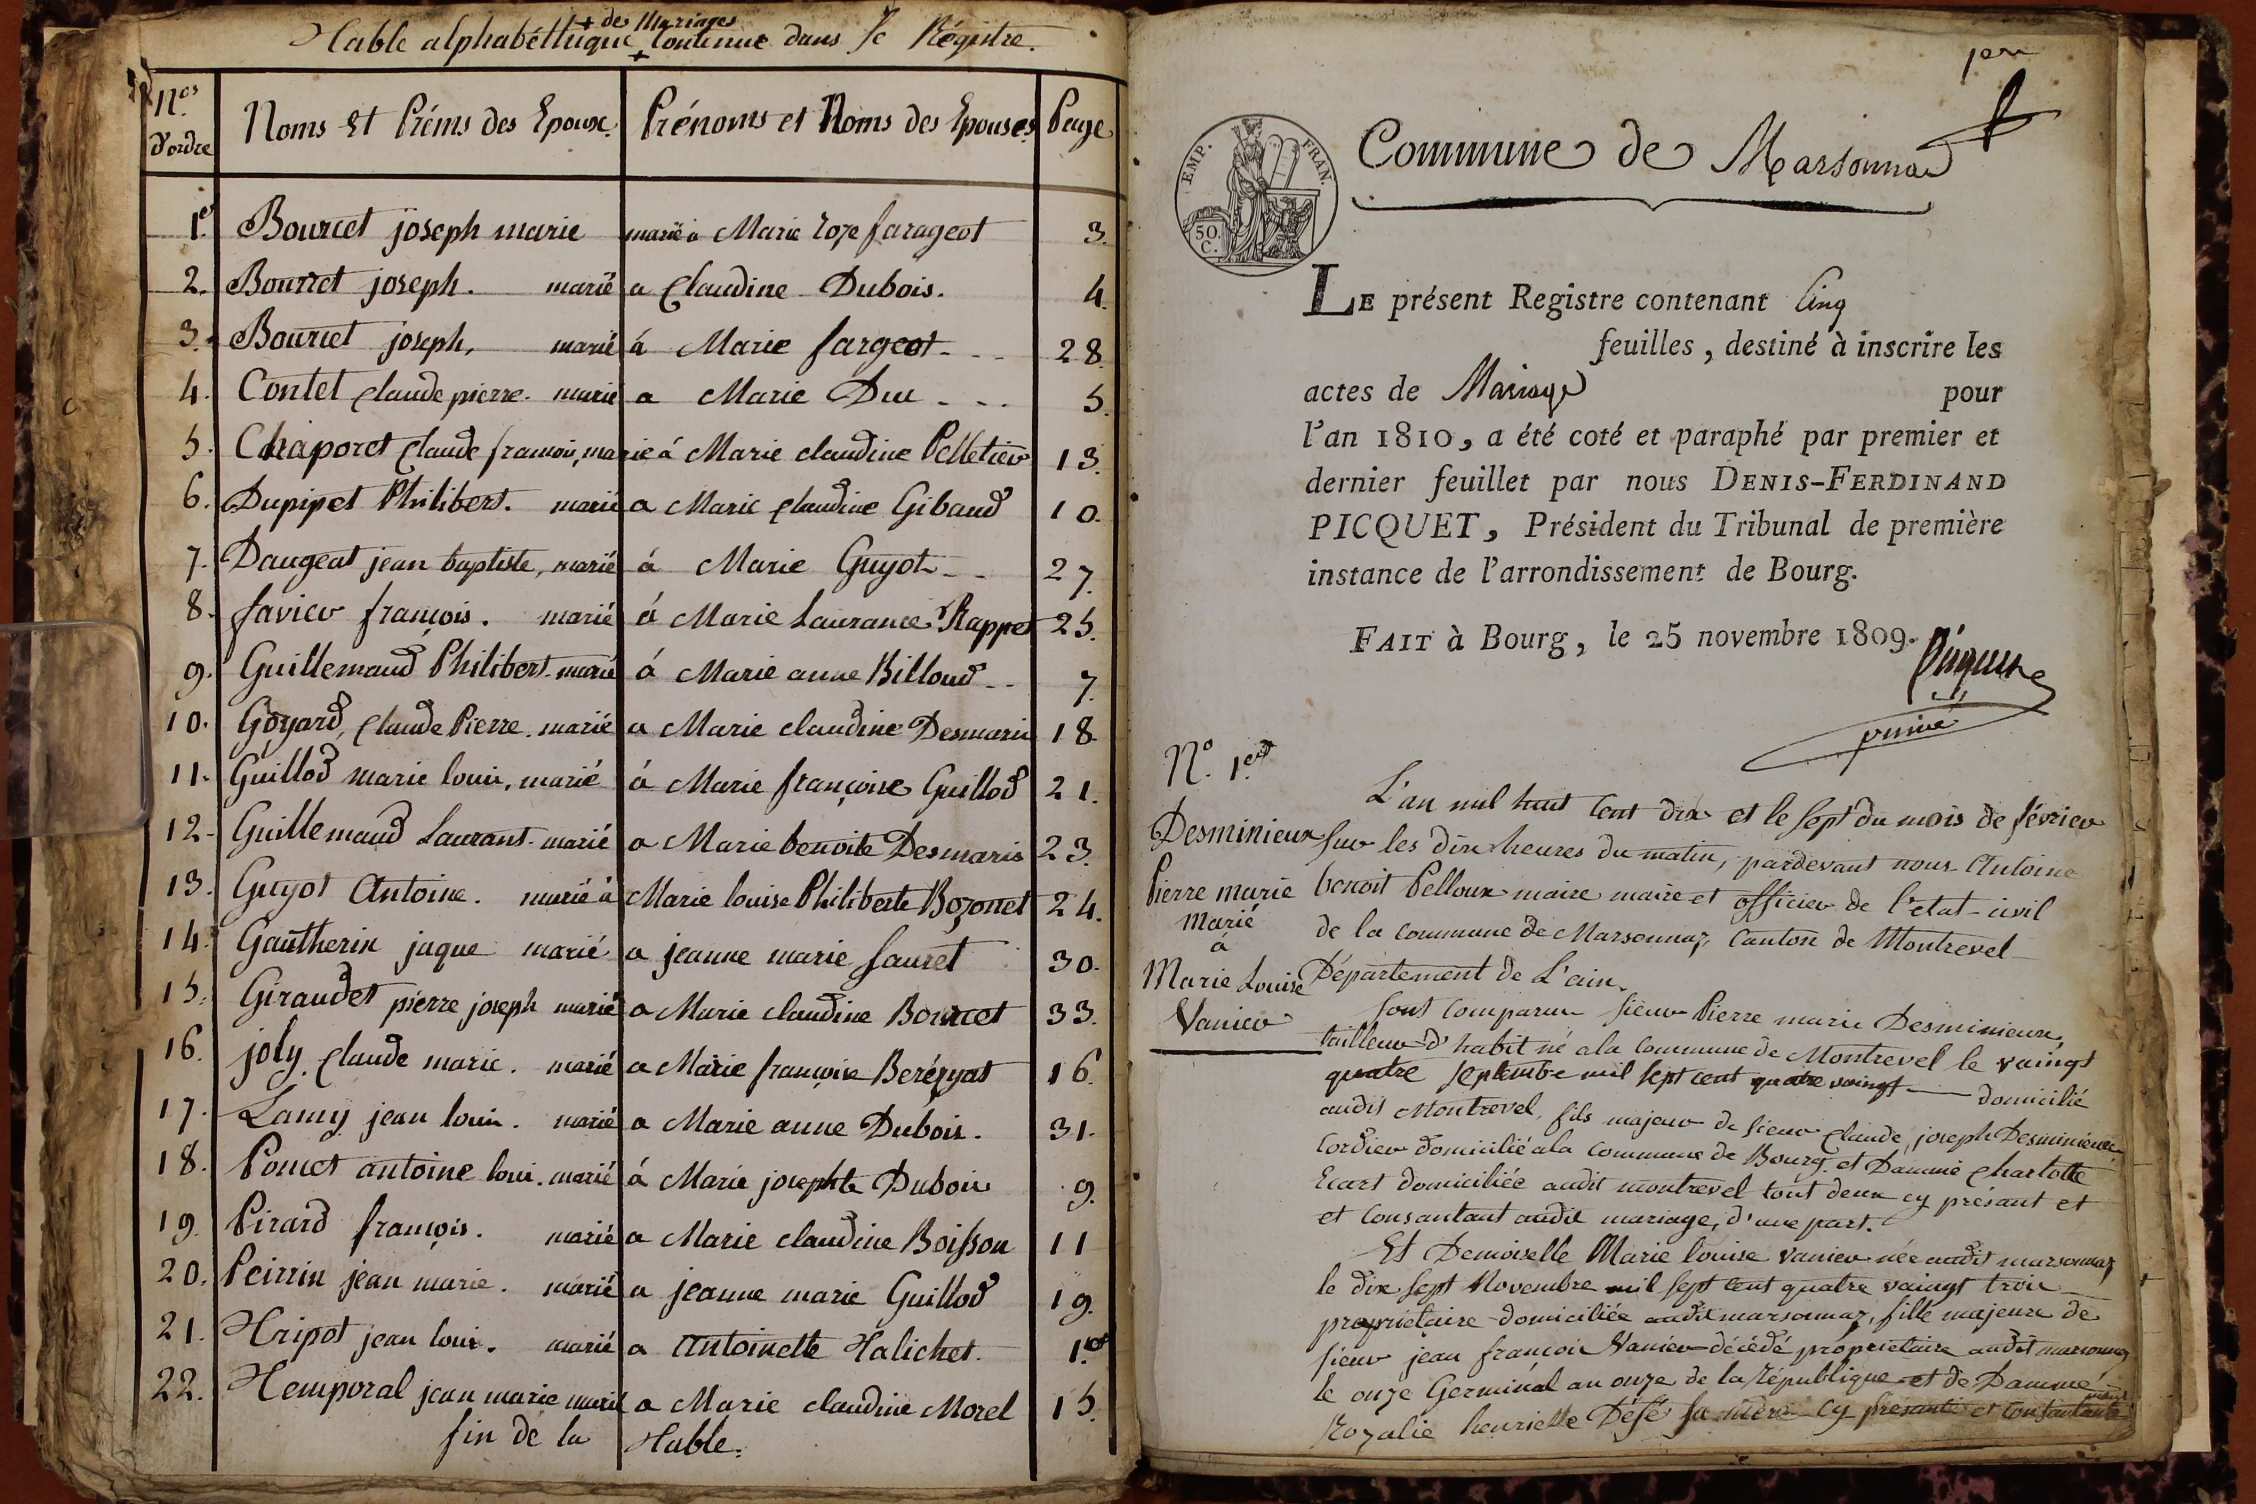 + des Mariages
Table alphabéttuque + Contenue dans le Régistre.
Nos d'ordre | Noms Et Prénms des Epoux. | Prénoms et Noms des Epouses | Page
1er. Bourcet joseph marie marié a Marie roze farageot 3.
2. Bourcet joseph. marié a Claudine Dubois. 4.
3. Bourcet joseph, marié á Marie fargeot - - - 28.
4. Contet Claude pierre. marié a Marie Duc - - - 5.
5. Chaporet Claude francois, marié á Marie claudine Pelletier 13.
6. Dupipet Philibert. marié a Marie Claudine Gibaud 10.
7. Daugeat jean baptiste, marié á Marie Guyot - - 27.
8. favier françois. marié á Marie Laurance Rappet 25.
9. Guillemaud Philibert. marié á Marie anne Billoud - - 7.
10. Goyard, Claude Pierre. marié a Marie claudine Desmaris 18
11. Guillod marie louis, marié á Marie françoise Guillod 21.
12. Guillemaud Laurant. marié a Marie benoite Desmaris 23.
13. Guyot Antoine. marié à Marie louise Philiberte Bozonet 24.
14. Gautherin jaque marié a jeanne marie fauret 30.
15. Giraudet pierre joseph marié a Marie claudine Bourcet 33.
16. joly, Claude marie. marié a Marie françoise Berézyat 16.
17. Lamy jean louis. marié a Marie anne Dubois. 31.
18. Pomet antoine loui. marié á Marie josephte Dubois 9.
19. Pirard françois. marié a Marie claudine Boisson 11
20. Peirrin jean marie. marié a jeanne marie Guillod 19.
21. Tripot jean louis. marié a Antoinette Talichet. 1.er
22. Temporal jean marie marié a Marie claudine Morel 15.
fin de la Table.
EMP. FRAN.
50. C.
Commune de Marsonnas
LE présent Registre contenant Cinq
feuilles, destiné à inscrire les
actes de Mariage pour
l'an 1810, a été coté et paraphé par premier et
dernier feuillet par nous DENIS-FERDINAND
PICQUET, Président du Tribunal de première
instance de l'arrondissement de Bourg.
FAIT à Bourg, le 25 novembre 1809.
Picquet
N.º 1.er
Desminieux
Pierre marie
marié
á
Marie Louise
Vanier
L'an mil huit Cent dix et le sept du mois de février
sur les dix heures du matin, pardevant nous Antoine
benoit Pelloux maire maire et officier de l'etat-civil
de la commune de Marsonnaz, Canton de Montrevel
Département de L'ain.
sont comparu sieur Pierre marie Desminieux,
tailleur d'habit né a la commune de Montrevel le vaingt
quatre septembre mil sept cent quatre vaingt — domicilié
audit Montrevel, fils majeur de sieur Claude, joseph Desminieux
Cordier domicilié a la commune de Bourg. et Damme Charlotte
Ecart domiciliée audit montrevel tout deux cy présant et
et Consantant audit mariage, d'une part.
Et Demoiselle Marie louise vanier née audit marsonnaz
le dix sept Novembre mil sept cent quatre vaingt trois
propriétaire domiciliée audit marsonnaz, fille majeure de
sieur jean françois Vanier décédé propriétaire audit marsonnaz
le onze Germinal an onze de la république et de Damme
Rozalie henriette Déssé sa mère cy présante et Consantante